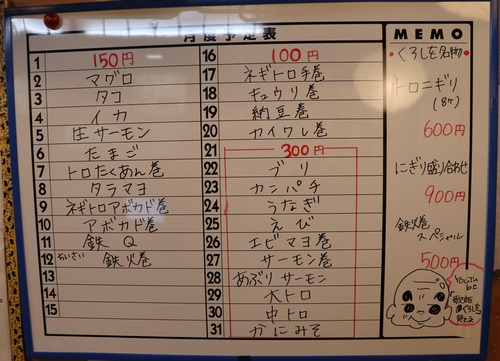 月度予定表
1 150円
2 マグロ
3 タコ
4 イカ
5 生サーモン
6 たまご
7 トロたくあん巻
8 タラマヨ
9 ネギトロアボカド巻
10 アボカド巻
11 鉄Q
12 鉄火巻
13
14
15
16 100円
17 ネギトロ手巻
18 キュウリ巻
19 納豆巻
20 カイワレ巻
21 300円
22 ブリ
23 カンパチ
24 うなぎ
25 えび
26 エビマヨ巻
27 サーモン巻
28 あぶりサーモン
29 大トロ
30 中トロ
31 かにみそ
MEMO
くろしを名物
トロニギリ
600円
にぎり盛り合わせ
900円
鉄火巻
スペシャル
500円